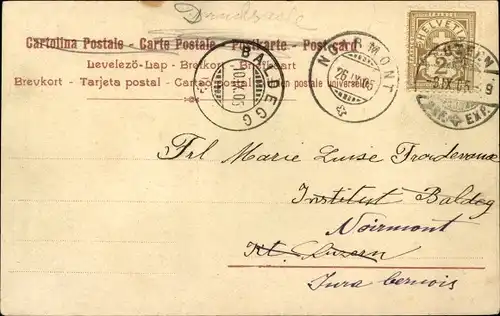 Drucksache
Cartolina Postale - Carte Postale - Postkarte - Post card
Levelező-Lap - Brefkort - Briefkaart
Brevkort - Tarjeta postal - Cartão postal universelle
BALDEGG
NOIRMONT
26.IX.05
HELVETIA
2
LUZERN
EXP.
Frl Marie Luise Froidevaux
Institut Baldeg
Noirmont
Kt. Luzern
Jura bernois